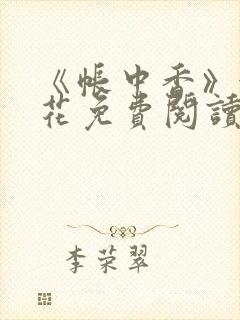 《帳中香》
花免費閱讀
李荣翠